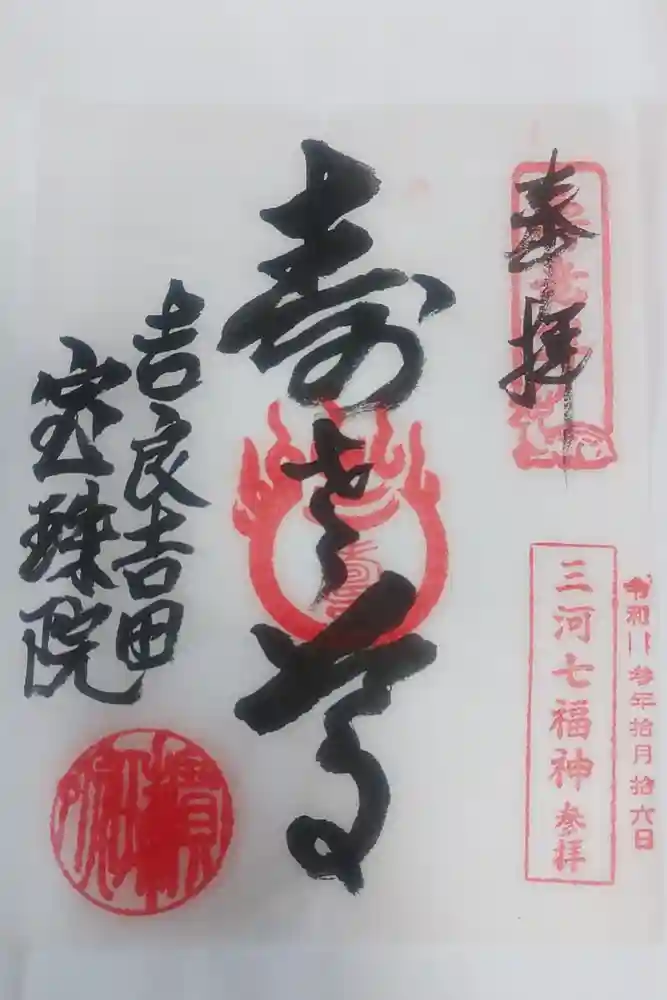 奉拝
令和参年拾月拾六日
三河七福神参拝
寿老尊
吉良吉田
宝珠院